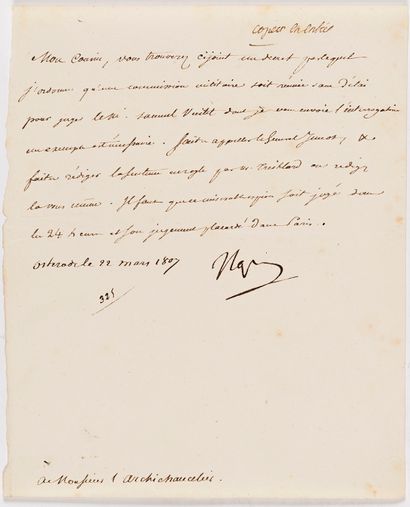 copier en entier
Mon Cousin, vous trouverez cijoint un decret par lequel
j'ordonne qu'une commission militaire soit réunie sans délai
pour juger le Sr. Samuel dont je vous envoie l'interrogatoire
un exemple est nécessaire. faites appeller le General Junot, &
faites rédiger la sentence en regle par M. Treilhard ou rediger
la vous même. Il faut que ce misérable espion soit jugé dans
les 24 heures et son jugement placardé dans Paris.
Osterode le 22 mars 1807
Np
325
A Monsieur l'Archichancelier.